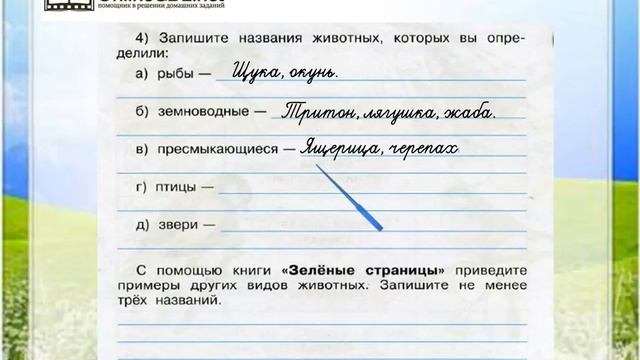 помощник в решении домашних заданий
4) Запишите названия животных, которых вы опре-
делили:
а) рыбы — Щука, окунь.
б) земноводные — Тритон, лягушка, жаба.
в) пресмыкающиеся — Ящерица, черепах
г) птицы —
д) звери —
С помощью книги «Зелёные страницы» приведите
примеры других видов животных. Запишите не менее
трёх названий.